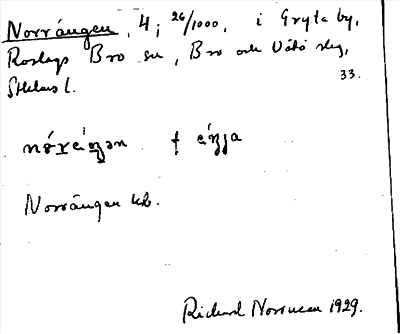 Norrängen, 4; 26/1000, i Gryta by,
Roslags Bro sn, Bro och Vätö slg,
Sthlms l. 33.
Norrängen kb.
Richard Norrman 1929.